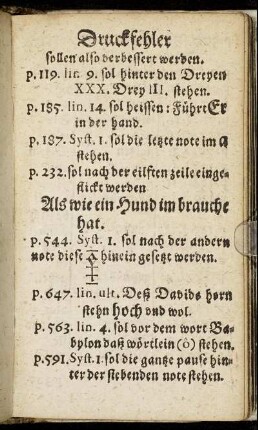 Druckfehler
sollen also verbessert werden.
p. 119. lin. 9. sol hinter den Dreyen
XXX. Drey III. stehen.
p. 185. lin. 14. sol heissen: Führt Er
in der hand.
p. 187. Syst. 1. sol die letzte note im a
stehen.
p. 232. sol nach der eilften zeile einge-
flickt werden
Als wie ein Hund im brauche
hat.
p. 544. Syst. 1. sol nach der andern
note diese hinein gesetzt werden.
p. 647. lin. ult. Deß Davids horn
stehn hoch und wol.
p. 563. lin. 4. sol vor dem wort Ba-
bylon daß wörtlein (ô) stehen.
p. 591. Syst. 1. sol die gantze pause hin-
ter der siebenden note stehen.